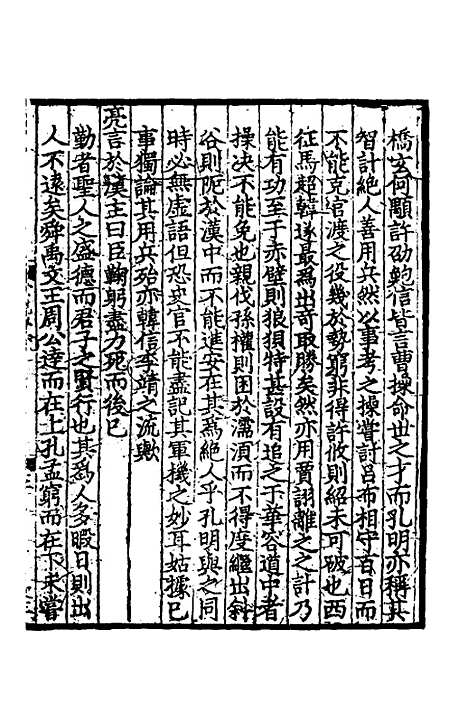 橋玄何顒許劭鮑信皆言曹操命世之才而孔明亦稱其
智計絕人善用兵然以事考之操嘗討呂布相守百日而
不能克官渡之役幾於勢窮非得許攸則紹未可破也西
征馬超韓遂最爲出奇取勝矣然亦用賈詡離之之計乃
能有功至于赤壁則狼狽特甚設有追之于華容道中者
操决不能免也親伐孫權則困於濡須而不得度繼出斜
谷則阨於漢中而不能進安在其爲絕人乎孔明與之同
時必無虛語但恐史官不能盡記其軍機之妙耳姑據已
事獨論其用兵殆亦韓信李靖之流歟
亮言於漢主曰臣鞠躬盡力死而後已
勤者聖人之盛德而君子之賢行也其爲人多暇日則出
人不遠矣舜禹文王周公達而在上孔孟窮而在下未嘗